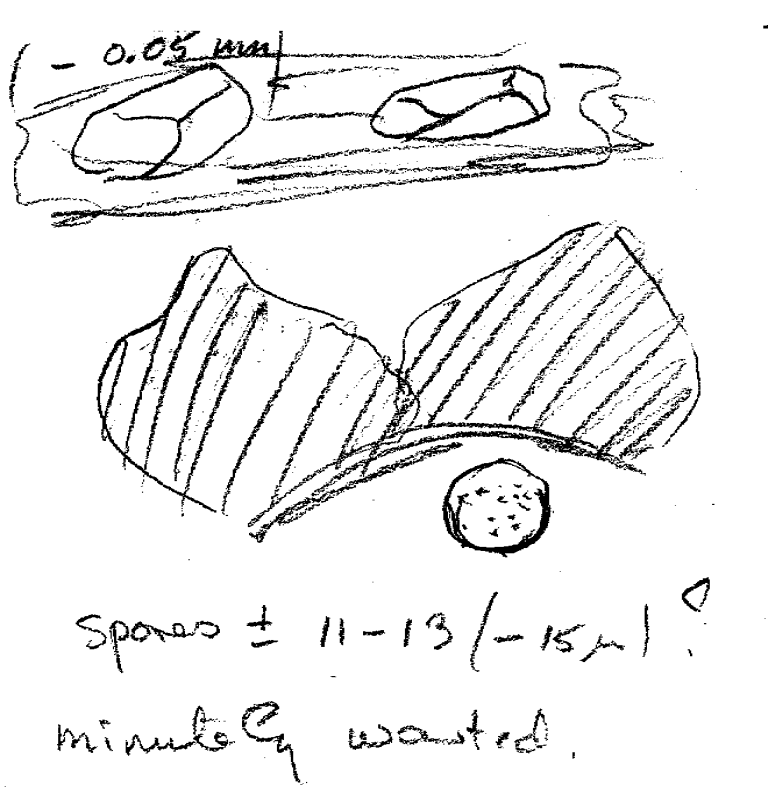 - 0.05 mm
spores ± 11-13 (-15 µ) ?
minutely warted.